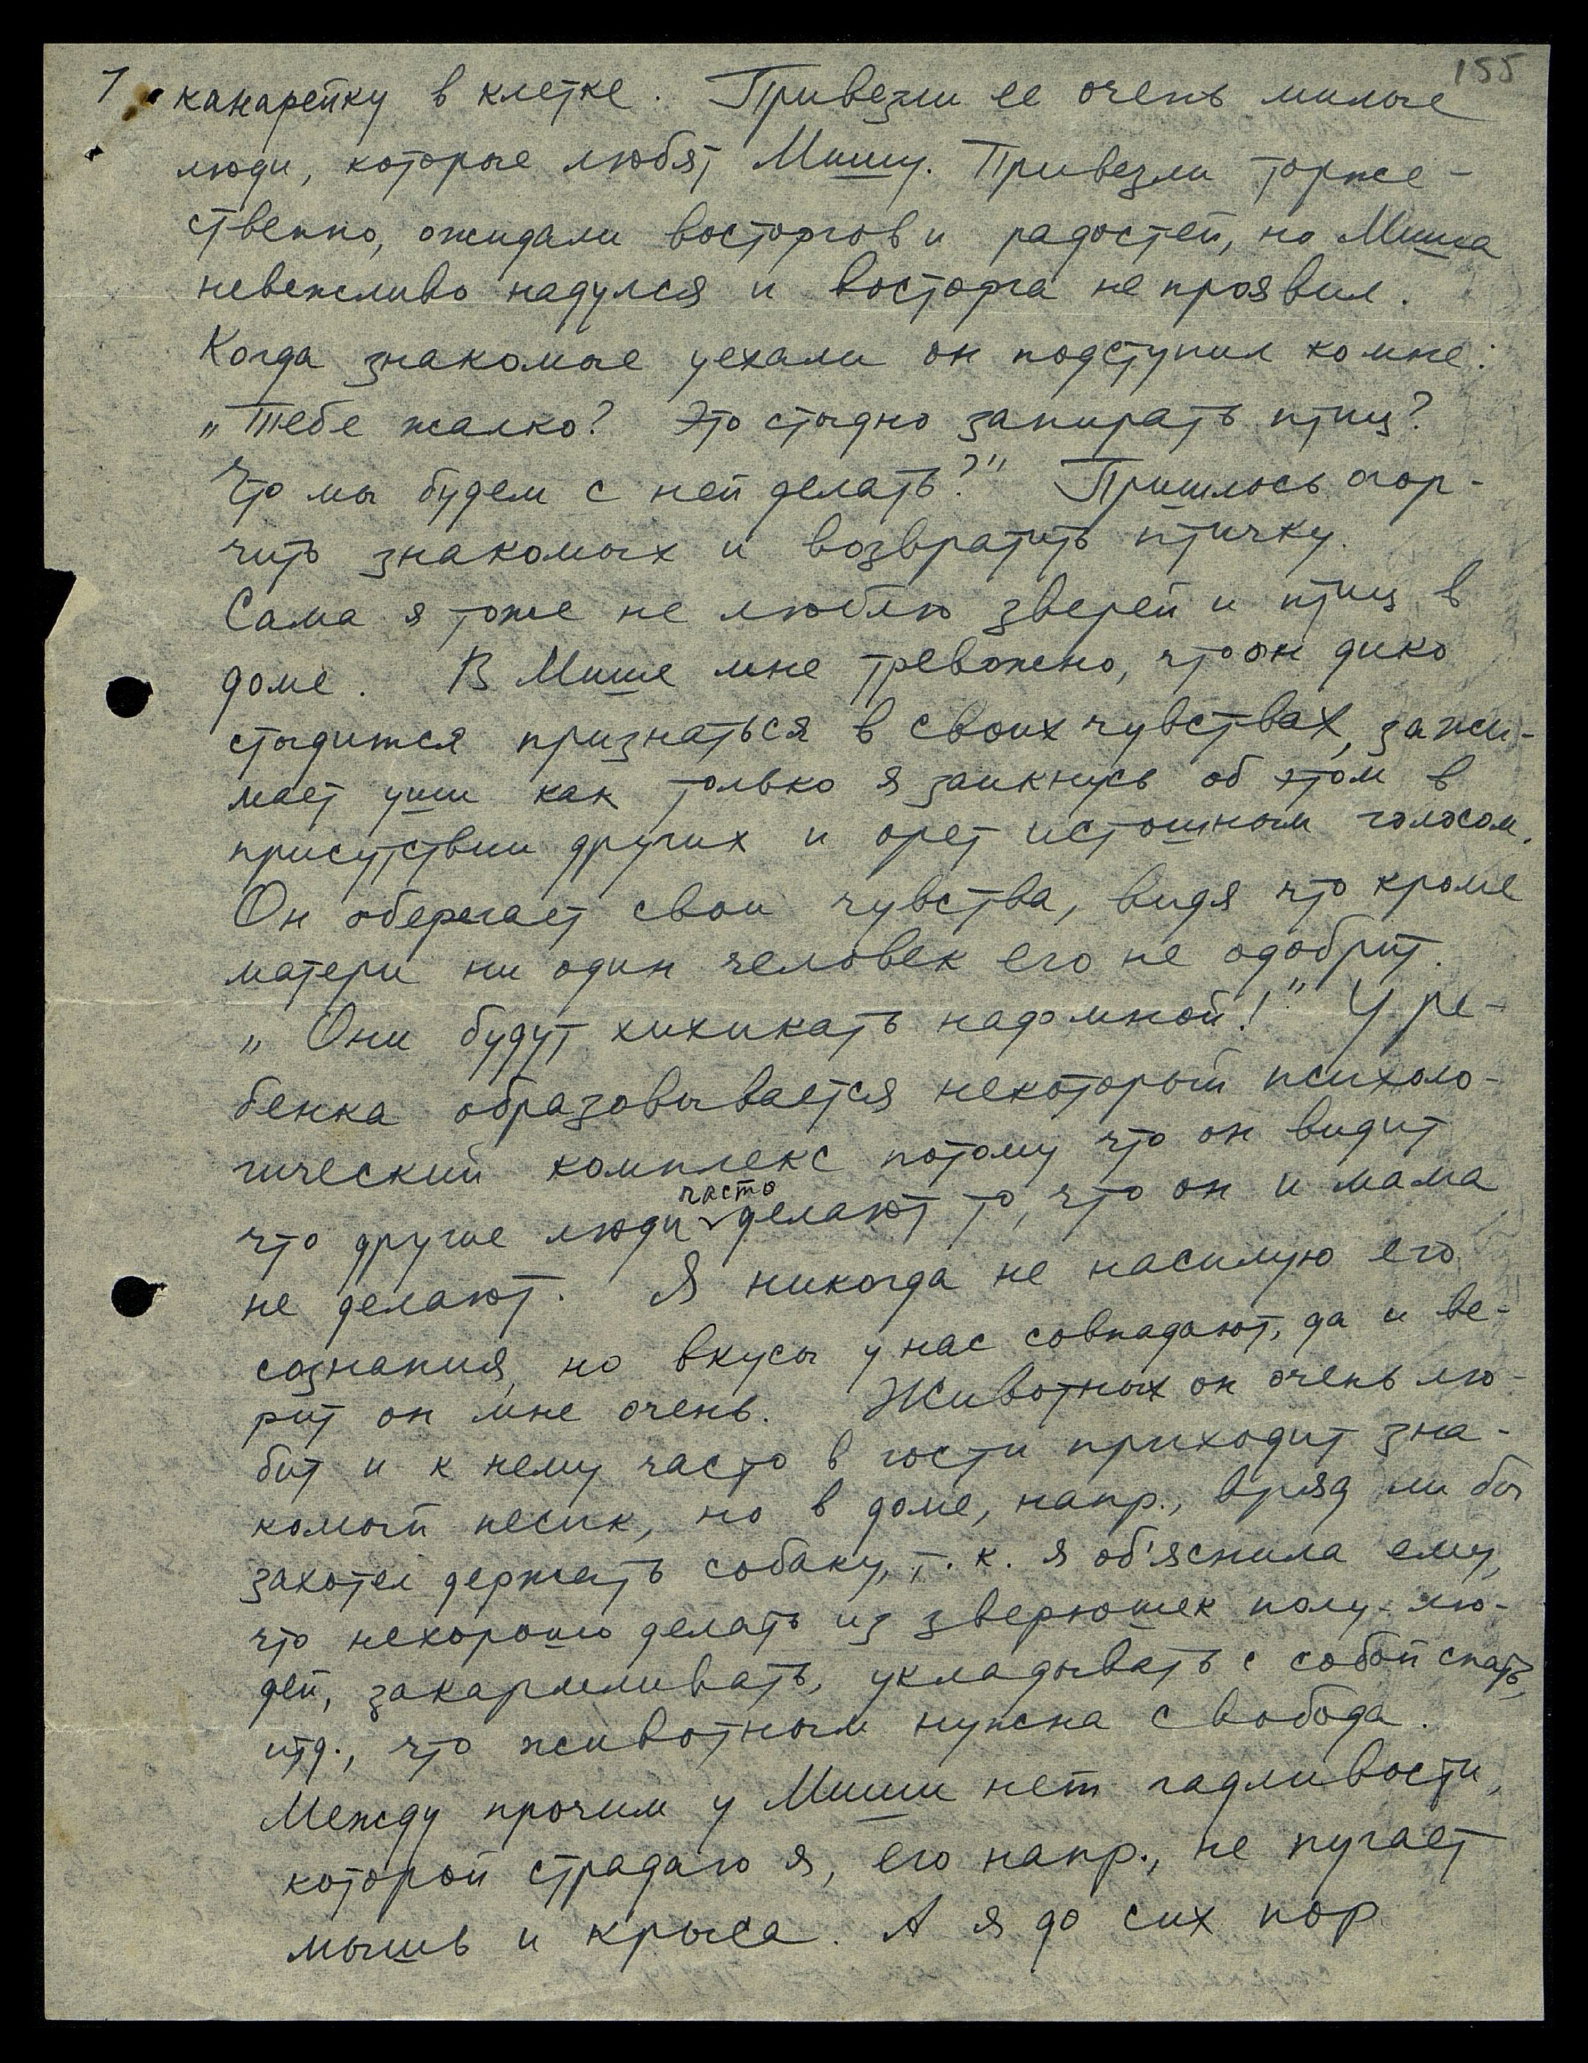 155
7 канарейку в клетке. Привезли ее очень милые
люди, которые любят Мишу. Привезли торже-
ственно, ожидали восторгов и радостей, но Миша
невежливо надулся и восторга не проявил.
Когда знакомые уехали он подступил ко мне:
„Тебе жалко? Это стыдно запирать птиц?
Что мы будем с ней делать?" Пришлось огор-
чить знакомых и возвратить птичку.
Сама я тоже не люблю зверей и птиц в
доме. В Мише мне тревожно, что он дико
стыдится признаться в своих чувствах, зажи-
мает уши как только я заикнусь об этом в
присутствии других и орет истошным голосом.
Он оберегает свои чувства, видя что кроме
матери ни один человек его не одобрит.
„Они будут хихикать надо мной!" У ре-
бенка образовывается некоторый психоло-
гический комплекс потому что он видит
что другие люди часто делают то, что он и мама
не делают. Я никогда не насилую его
сознания, но вкусы у нас совпадают, да и ве-
рит он мне очень. Животных он очень лю-
бит и к нему часто в гости приходит зна-
комый песик, но в доме, напр., вряд ли бы
захотел держать собаку, т. к. я об'яснила ему,
что нехорошо делать из зверюшек полу-лю-
дей, закармливать, укладывать с собой спать,
итд., что животным нужна свобода.
Между прочим у Миши нет гадливости,
которой страдаю я, его напр., не пугает
мышь и крыса. А я до сих пор